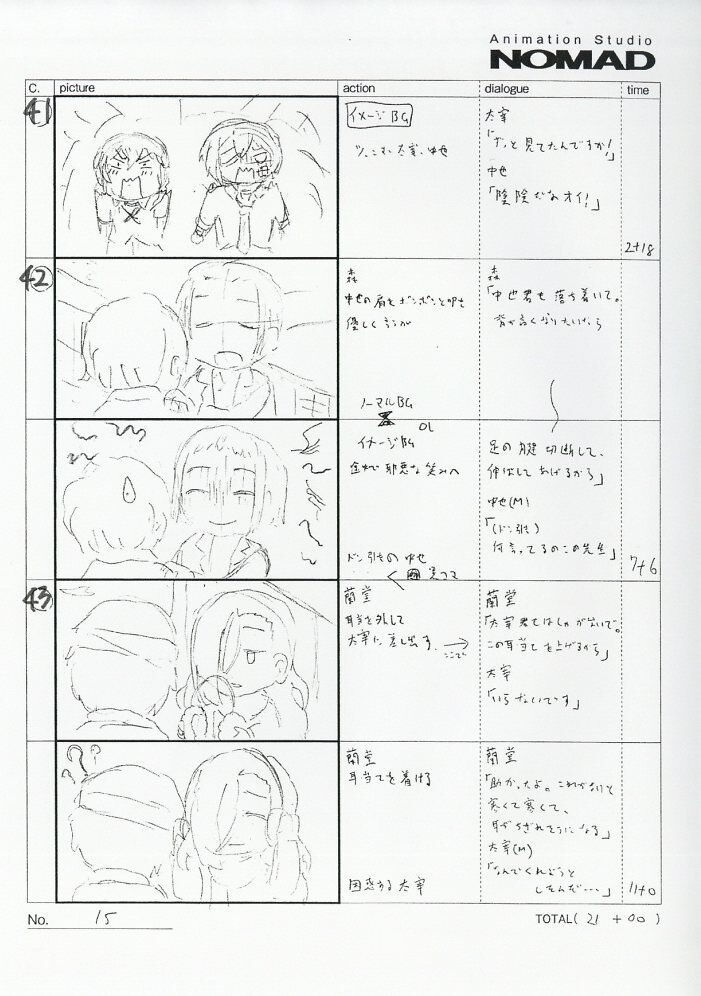 Animation Studio
NOMAD
C. picture action dialogue time
41
イメージBG
ツッこむ 太宰、中也
太宰
「ずっと見てたんですか!」
中也
「陰険だなオイ!」
2+18
42
森
中也の肩をポンポンと叩き
優しく言うが
森
「中也君も落ち着いて。
背が高くなりたいなら
ノーマルBG
OL
イメージBG
邪悪な笑みへ
足の腱切断して、
伸ばしてあげるから」
中也(M)
「(ドン引き)
何言ってるのこの先生」
ドン引きの中也
7+6
43
蘭堂
耳当てを外して
太宰に差し出す
蘭堂
「太宰君もはしゃがないで。
この耳当てを上げるから」
太宰
「いらないです」
蘭堂
耳当てを着ける
蘭堂
「助かったよ。これがないと
寒くて寒くて、
耳がちぎれそうになる」
太宰(M)
「なんでくれようと
したんだ…」
困惑する太宰
11+0
No. 15
TOTAL( 21 + 00 )